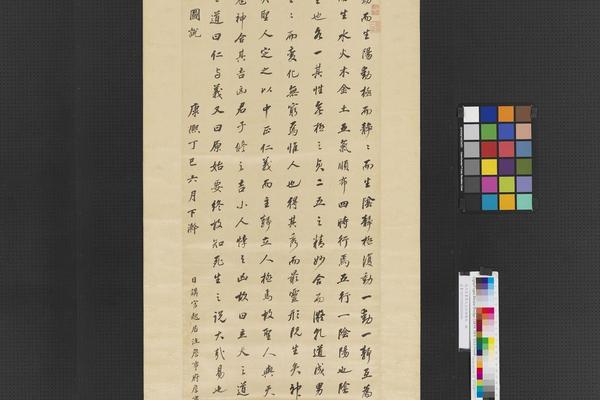 動而生陽動極而靜〻而生陰靜極復動一動一靜互為
而生水火木金土五氣順布四時行焉五行一陰陽也陰
生也各一其性無極之真二五之精妙合而凝乾道成男
〻而變化無窮焉惟人也得其秀而最靈形既生矣神
聖人定之以中正仁義而主靜立人極焉故聖人與天
鬼神合其吉凶君子修之吉小人悖之凶故曰立天之道
道曰仁与義又曰原始要終故知死生之説大哉易也
圖説 康熙丁巳六月下澣 日講官起居注詹事府詹